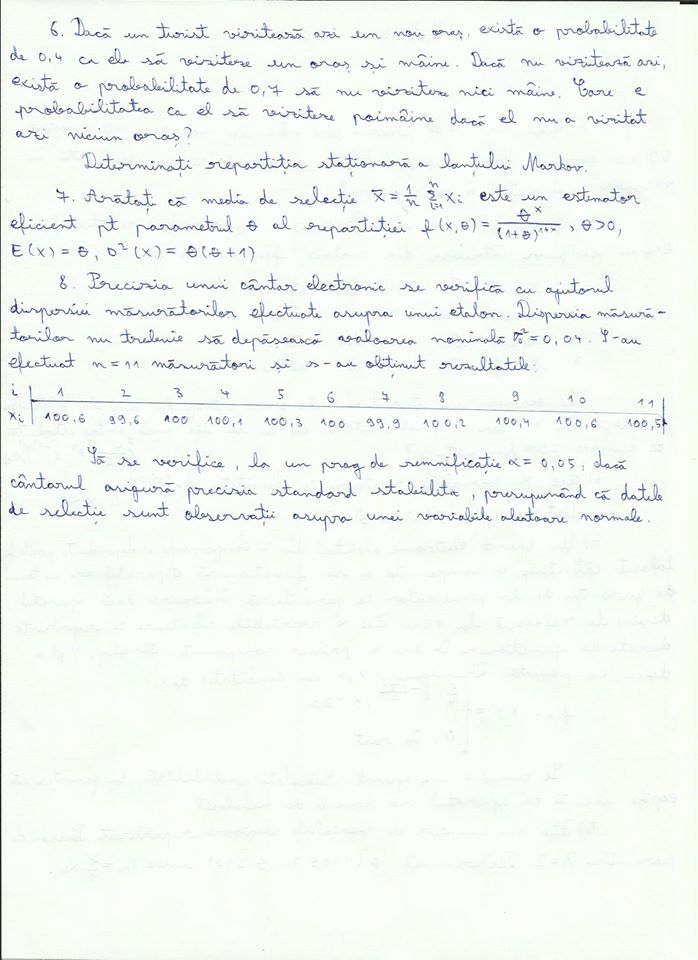 6. Dacă un turist vizitează azi un nou oraș, există o probabilitate
de 0,4 ca el să viziteze un oraș și mâine. Dacă nu vizitează azi,
există o probabilitate de 0,7 să nu viziteze nici mâine. Care e
probabilitatea ca el să viziteze poimâine dacă el nu a vizitat
azi niciun oraș?
Determinați repartiția staționară a lanțului Markov.
7. Arătați că media de selecție x̄ = 1/n Σ_{i=1}^{n} Xi este un estimator
eficient pt parametrul θ al repartiției f(x,θ) = θ^x/(1+θ)^{1+x}, θ>0,
E(X) = θ, D²(X) = θ(θ+1)
8. Precizia unui cântar electronic se verifică cu ajutorul
dispersiei măsurătorilor efectuate asupra unui etalon. Dispersia măsură-
torilor nu trebuie să depășească valoarea nominală σ₀² = 0,04. S-au
efectuat n = 11 măsurători și s-au obținut rezultatele:
i 1 2 3 4 5 6 7 8 9 10 11
xi 100,6 99,6 100 100,1 100,3 100 99,9 100,2 100,4 100,6 100,5
Să se verifice, la un prag de semnificație α = 0,05, dacă
cântarul asigură precizia standard stabilita, presupunând că datele
de selecție sunt observații asupra unei variabile aleatoare normale.